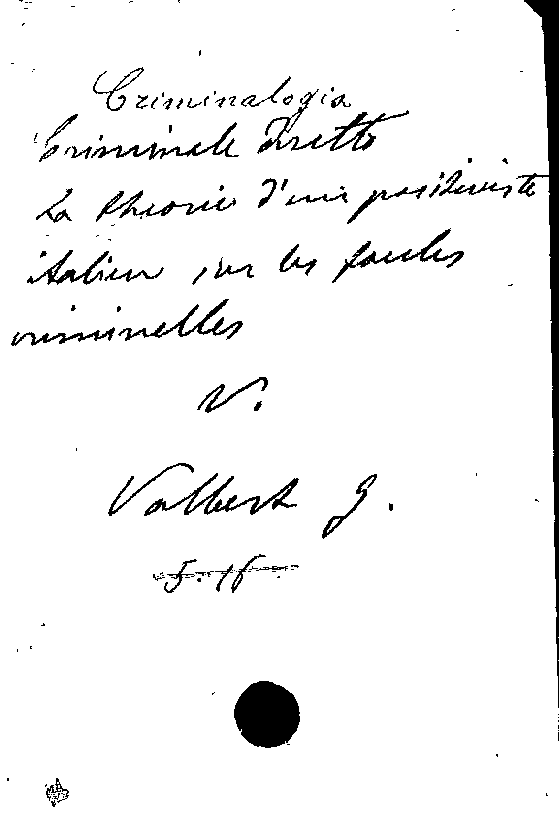 Criminalogia
Criminale Diritto
La théorie d'un positiviste
italien sur les foules
criminelles
V.
Valbert G.
5. 16